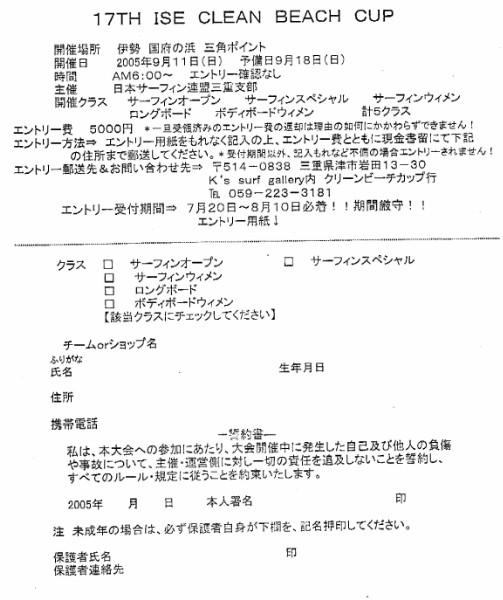 17TH ISE CLEAN BEACH CUP
開催場所 伊勢 国府の浜 三角ポイント
開催日 2005年9月11日(日) 予備日9月18日(日)
時間 AM6:00～ エントリー確認なし
主催 日本サーフィン連盟三重支部
開催クラス サーフィンオープン サーフィンスペシャル サーフィンウィメン
ロングボード ボディボードウィメン 計5クラス
エントリー費 5000円 *一旦受領済みのエントリー費の返却は理由の如何にかかわらずできません!
エントリー方法⇒ エントリー用紙をもれなく記入の上、エントリー費とともに現金書留にて下記
の住所まで郵送してください。*受付期間以外、記入もれなど不備の場合エントリーされません!
エントリー郵送先&お問い合わせ先⇒ 〒514-0838 三重県津市岩田13-30
K's surf gallery内 クリーンビーチカップ行
℡ 059-223-3181
エントリー受付期間⇒ 7月20日～8月10日必着!!期間厳守!!
エントリー用紙↓
クラス □ サーフィンオープン □ サーフィンスペシャル
□ サーフィンウィメン
□ ロングボード
□ ボディボードウィメン
【該当クラスにチェックしてください】
チームorショップ名
ふりがな
氏名 生年月日
住所
携帯電話
―誓約書―
私は、本大会への参加にあたり、大会開催中に発生した自己及び他人の負傷
や事故について、主催・運営側に対し一切の責任を追及しないことを誓約し、
すべてのルール・規定に従うことを約束いたします。
2005年 月 日 本人署名 印
注 未成年の場合は、必ず保護者自身が下欄を、記名押印してください。
保護者氏名 印
保護者連絡先